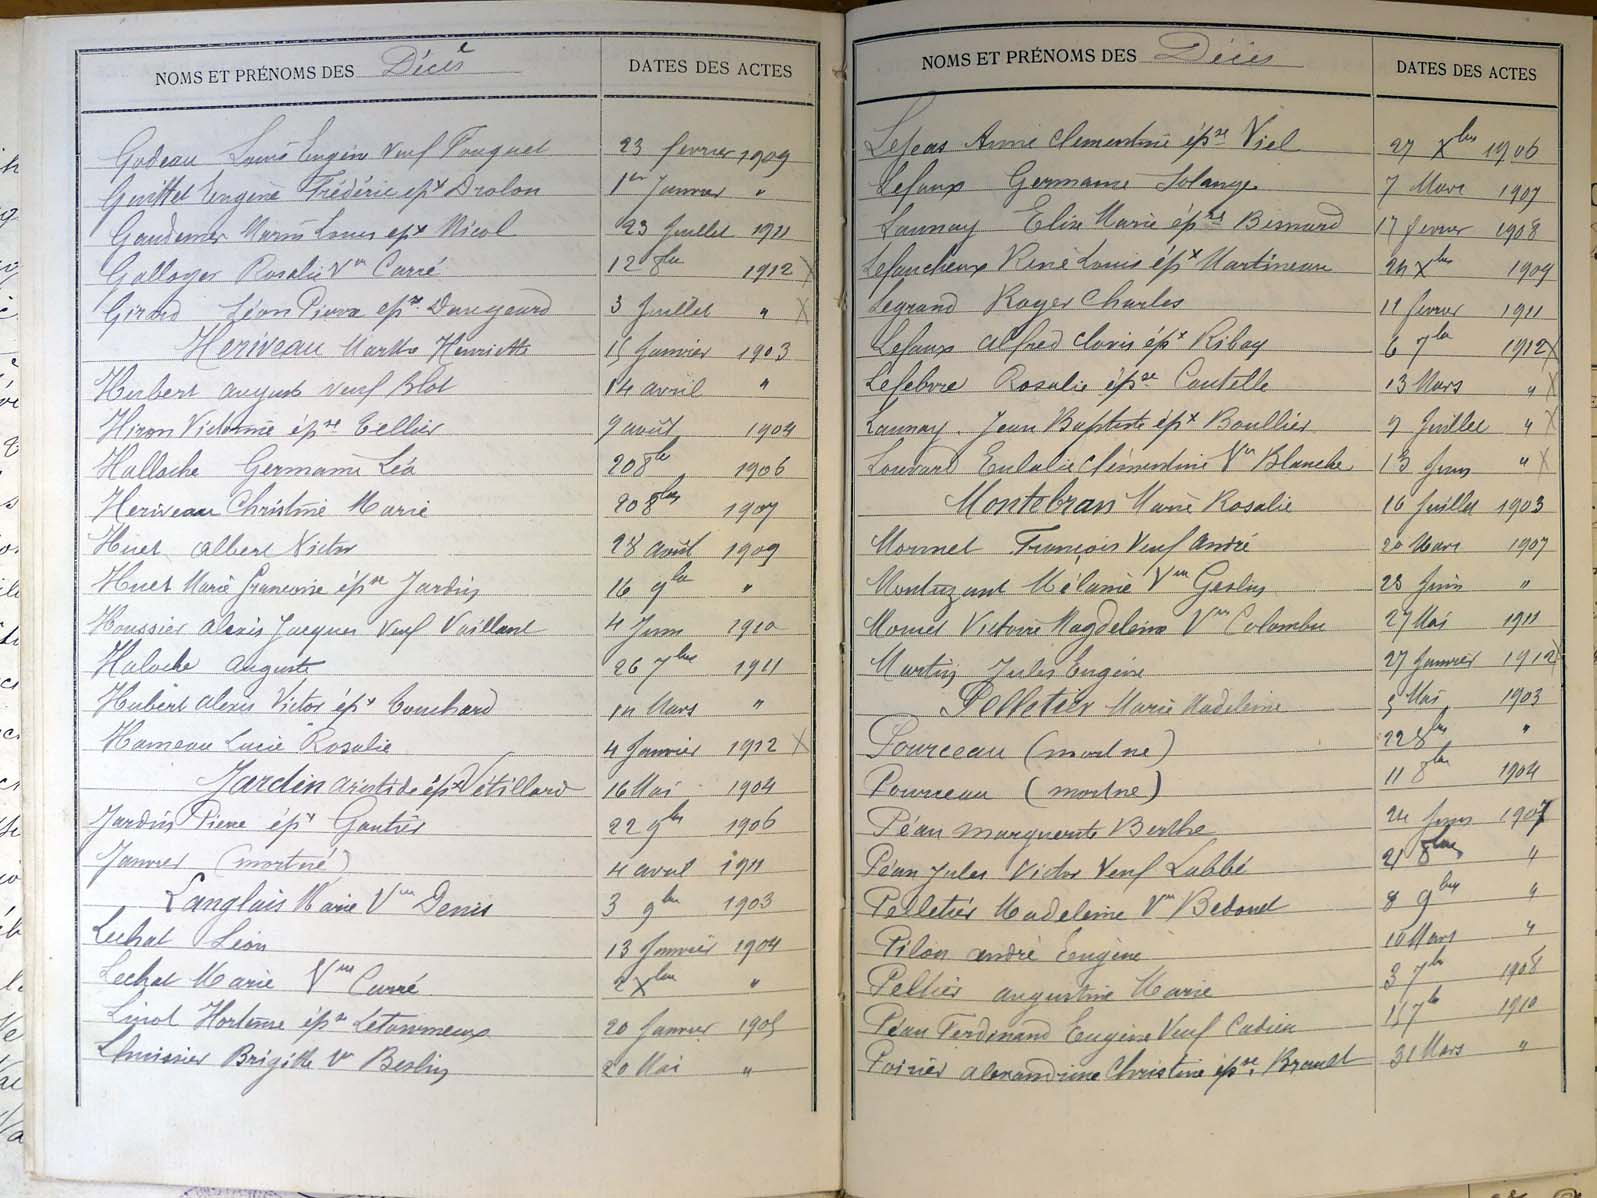 NOMS ET PRÉNOMS DES Décès DATES DES ACTES
Godeau Louis Eugène Veuf Fouquet 23 fevrier 1909
Guittet Eugène Frédéric épx Drolon 1er Janvier "
Gaudemer Marin Louis épx Nicol 23 Juillet 1911
Galloyer Rosalie Vve Carré 12 8bre 1912 X
Girard Léon Pierre épx Dangeard 3 Juillet " X
Heriveau Marthe Henriette 15 Janvier 1903
Herbert Auguste Veuf Blot 14 avril "
Hiron Victorine épse Cellier 9 août 1904
Halloche Germaine Léa 20 8bre 1906
Heriveau Christine Marie 20 8bre 1907
Huet Albert Victor 28 août 1909
Huet Marie Françoise épse Jardin 16 9bre "
Houssier Alexis Jacques Veuf Vaillant 4 Juin 1910
Haloche Auguste 26 7bre 1911
Hubert Alexis Victor épx Couchard 14 Mars "
Hameau Lucie Rosalie 4 Janvier 1912 X
Jardin Aristide épx Vétillard 16 Mai 1904
Jardin Pierre épx Gautier 22 9bre 1906
Janvier (mort né) 4 avril 1911
Langlais Marie Vve Denis 3 9bre 1903
Lechat Léon 13 Janvier 1904
Lechat Marie Vve Curré 2 Xbre "
Linot Hortense épse Letourneux 20 Janvier 1905
Lhuissier Brigitte Vve Berlin 20 Mai "
NOMS ET PRÉNOMS DES Décès DATES DES ACTES
Lefeas Anne Clementine épse Viel 27 Xbre 1906
Lefaux Germaine Solange 7 Mars 1907
Launay Elise Marie épse Besnard 17 fevrier 1908
Lefaucheux René Louis épx Martineau 24 Xbre 1909
Legrand Roger Charles 11 fevrier 1911
Lefaux Alfred Clovis épx Ribay 6 7bre 1912 X
Lefebvre Rosalie épse Coutelle 13 Mars " X
Launay Jean Baptiste épx Boullier 9 Juillet " X
Louvard Eulalie Clémentine Vve Blanche 13 Juin " X
Montebran Marie Rosalie 16 Juillet 1903
Monnet François Veuf André 20 Mars 1907
Montazant Mélanie Vve Geslin 23 Juin "
Mounet Victoire Magdeleine Vve Colombu 27 Mai 1911
Martin Jules Eugène 27 Janvier 1912 X
Pelletier Marie Madeleine 5 Mai 1903
Pourceau (mort né) 22 8bre "
Pourceau (mort né) 11 8bre 1904
Péan Marguerite Berthe 24 Juin 1907
Péan Jules Victor Veuf Labbé 21 8bre "
Pelletier Madeleine Vve Bedouet 8 9bre "
Pilon André Eugène 10 Mars "
Peltier Augustine Marie 3 7bre 1908
Péan Ferdinand Eugène Veuf Cadieu 1 7bre 1910
Poirier Alexandrine Christine épse Brault 31 Mars "